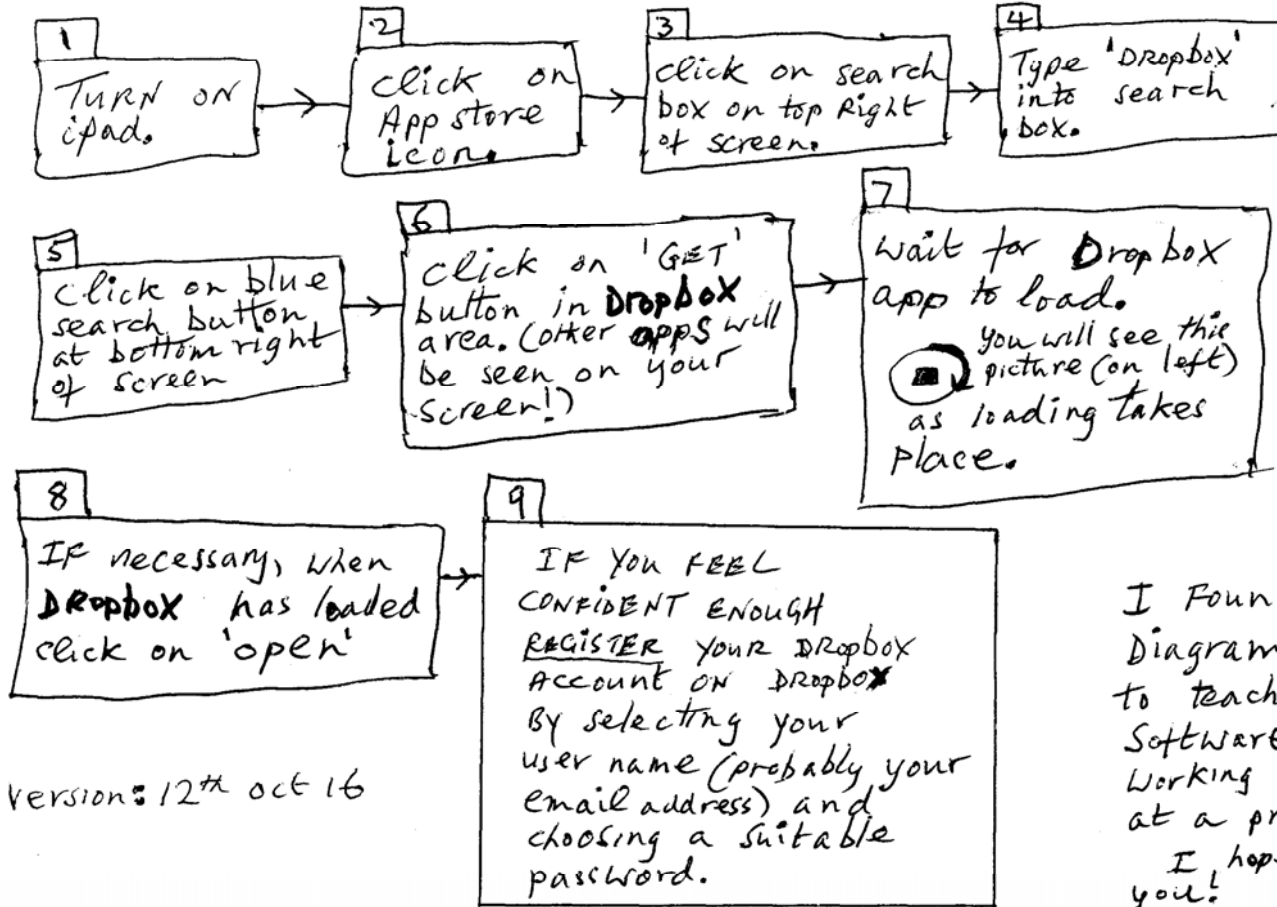 1
TURN ON
ipad.
2
click on
App store
icon.
3
click on search
box on top Right
of screen.
4
Type 'DRopbox'
into search
box.
5
click on blue
search button
at bottom right
of screen
6
click on 'GET'
button in Dropbox
area. (other apps will
be seen on your
screen!)
7
wait for Dropbox
app to load.
you will see this
picture (on left)
as loading takes
place.
8
IF necessary, when
DRopbox has loaded
click on 'open'
9
IF YOU FEEL
CONFIDENT ENOUGH
REGISTER YOUR DRopbox
ACCOUNT ON DRopbox
By selecting your
user name (probably your
email address) and
choosing a suitable
password.
version: 12th oct 16
I Foun
Diagram
to teach
Softwar
working
at a pr
I hop
you!